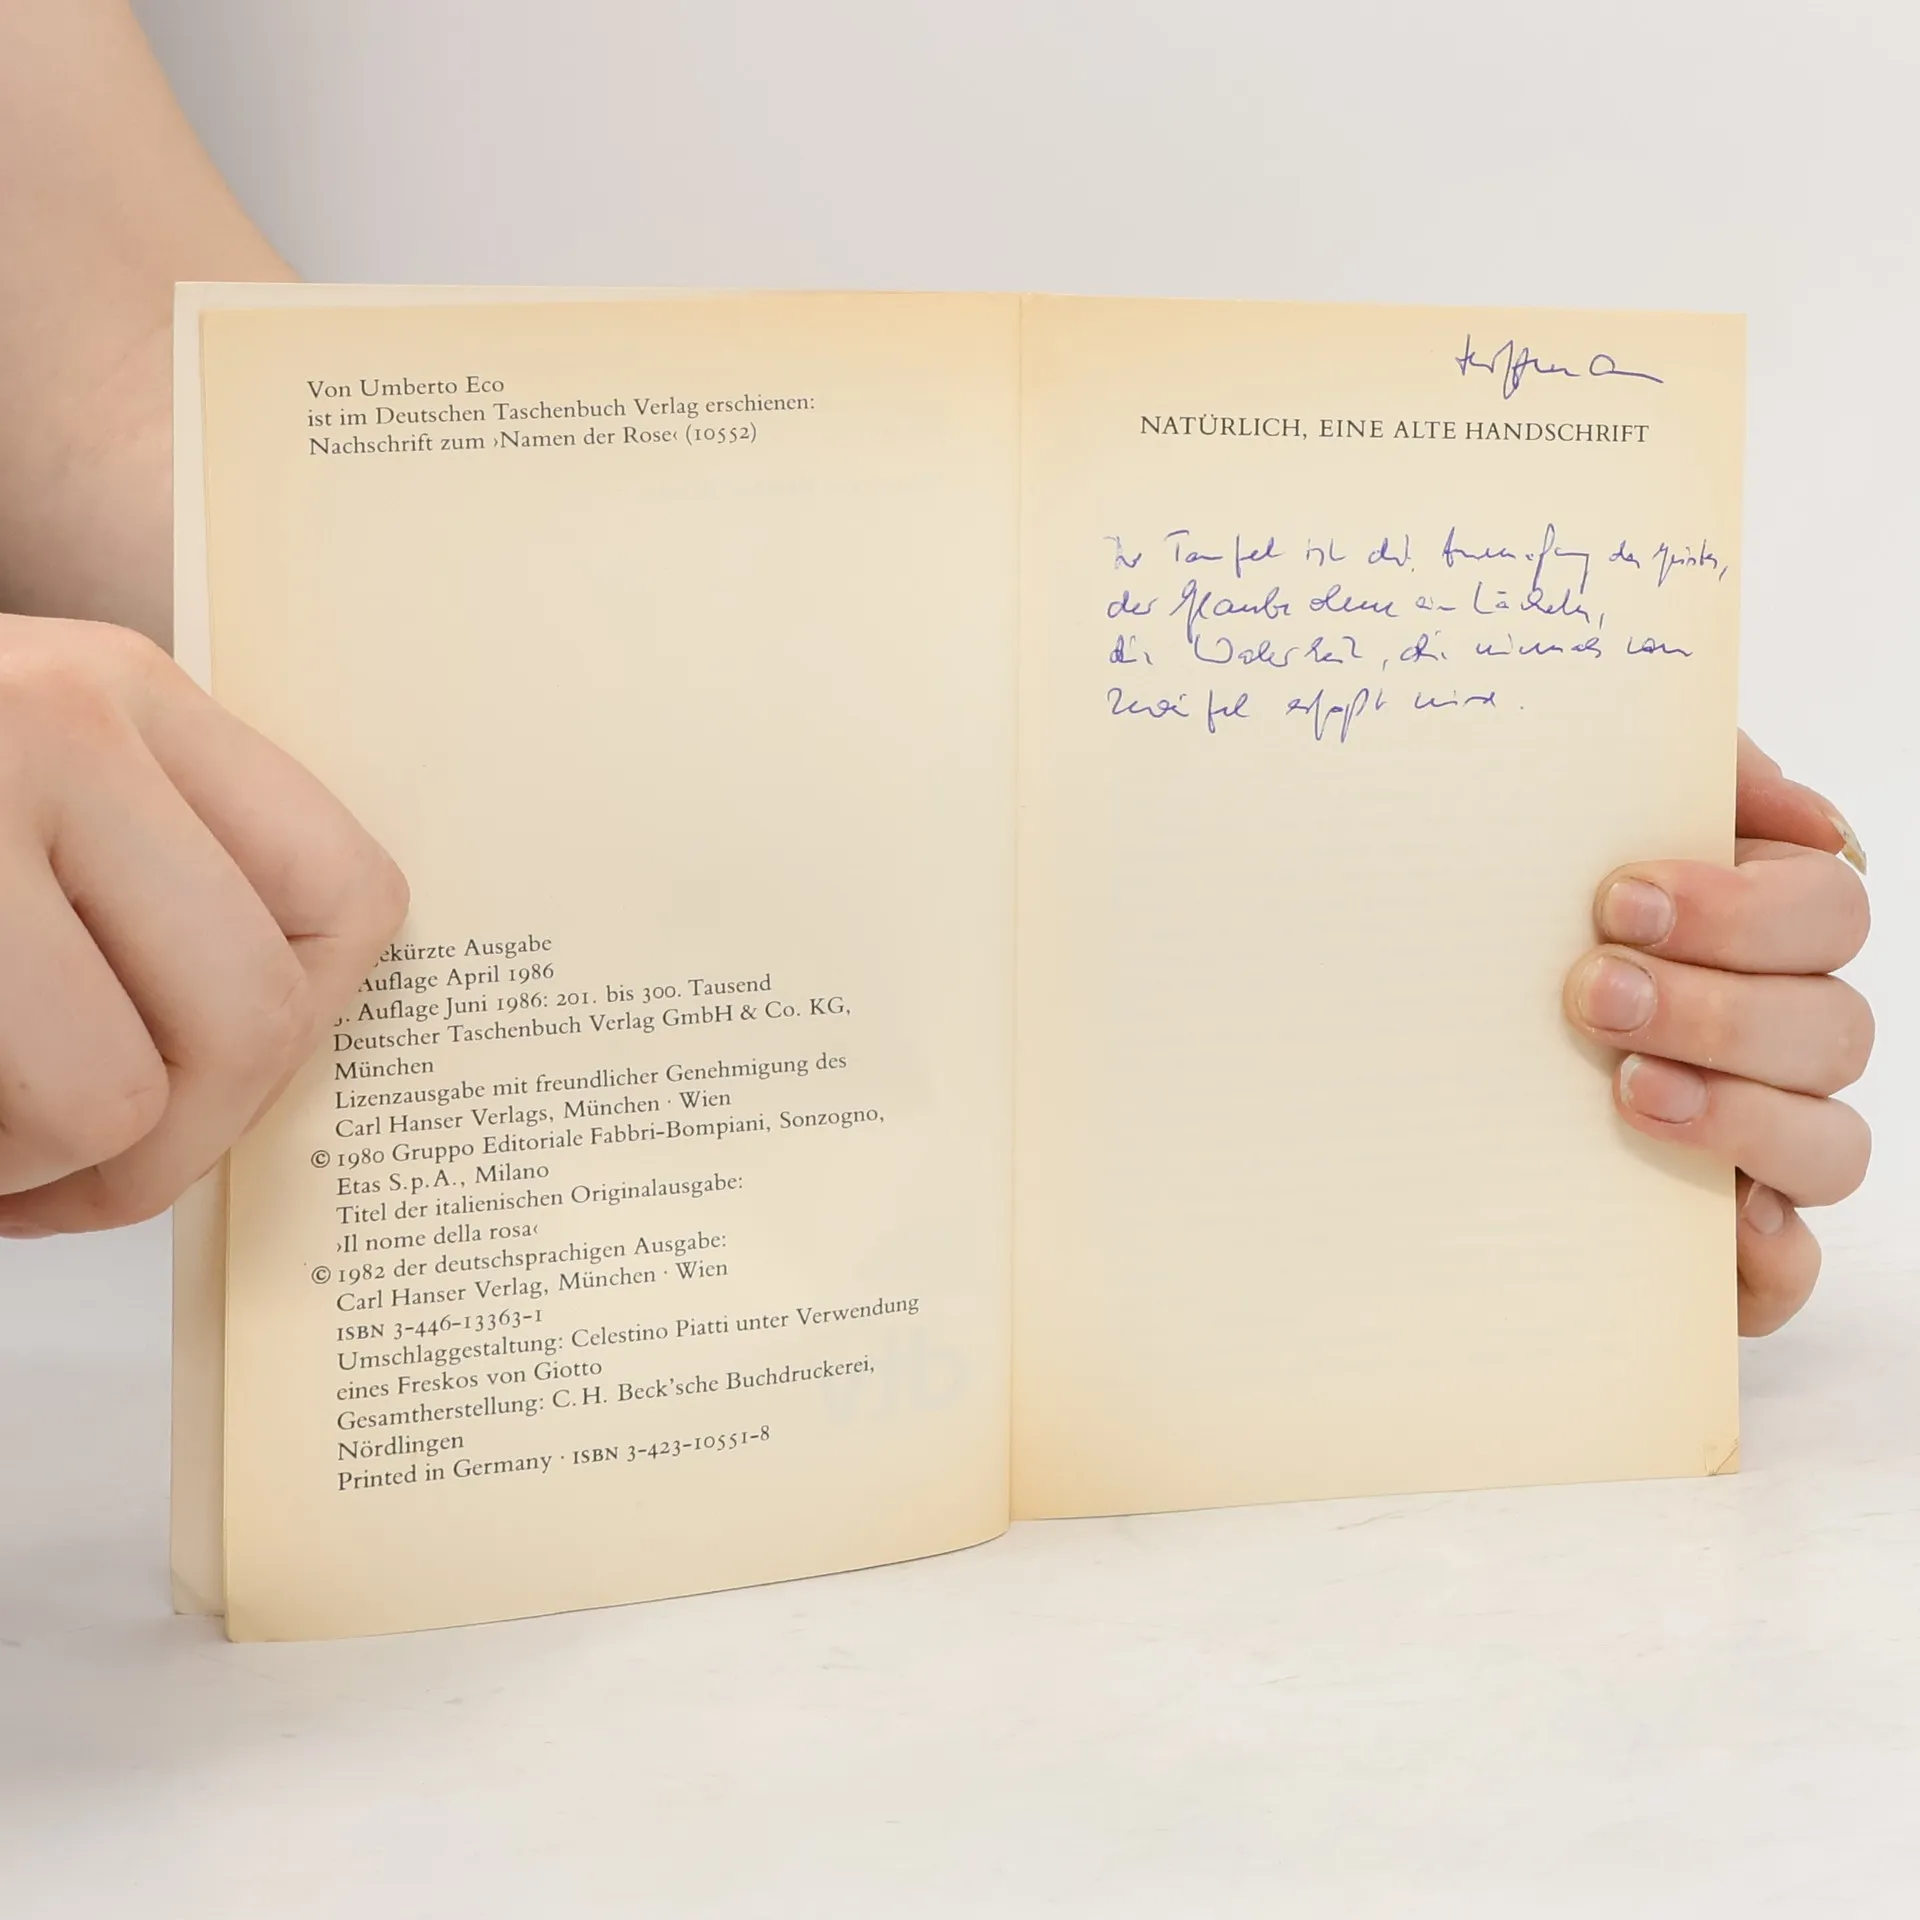 Von Umberto Eco
ist im Deutschen Taschenbuch Verlag erschienen:
Nachschrift zum ›Namen der Rose‹ (10552)
ekürzte Ausgabe
Auflage April 1986
. Auflage Juni 1986: 201. bis 300. Tausend
Deutscher Taschenbuch Verlag GmbH & Co. KG,
München
Lizenzausgabe mit freundlicher Genehmigung des
Carl Hanser Verlags, München · Wien
© 1980 Gruppo Editoriale Fabbri-Bompiani, Sonzogno,
Etas S.p.A., Milano
Titel der italienischen Originalausgabe:
›Il nome della rosa‹
© 1982 der deutschsprachigen Ausgabe:
Carl Hanser Verlag, München · Wien
ISBN 3-446-13363-1
Umschlaggestaltung: Celestino Piatti unter Verwendung
eines Freskos von Giotto
Gesamtherstellung: C. H. Beck'sche Buchdruckerei,
Nördlingen
Printed in Germany · ISBN 3-423-10551-8
NATÜRLICH, EINE ALTE HANDSCHRIFT
Der Teufel ist die des Geistes,
der Glaube ohne ein Lächeln,
die Wahrheit, die niemals vom
Zweifel erfaßt wird.